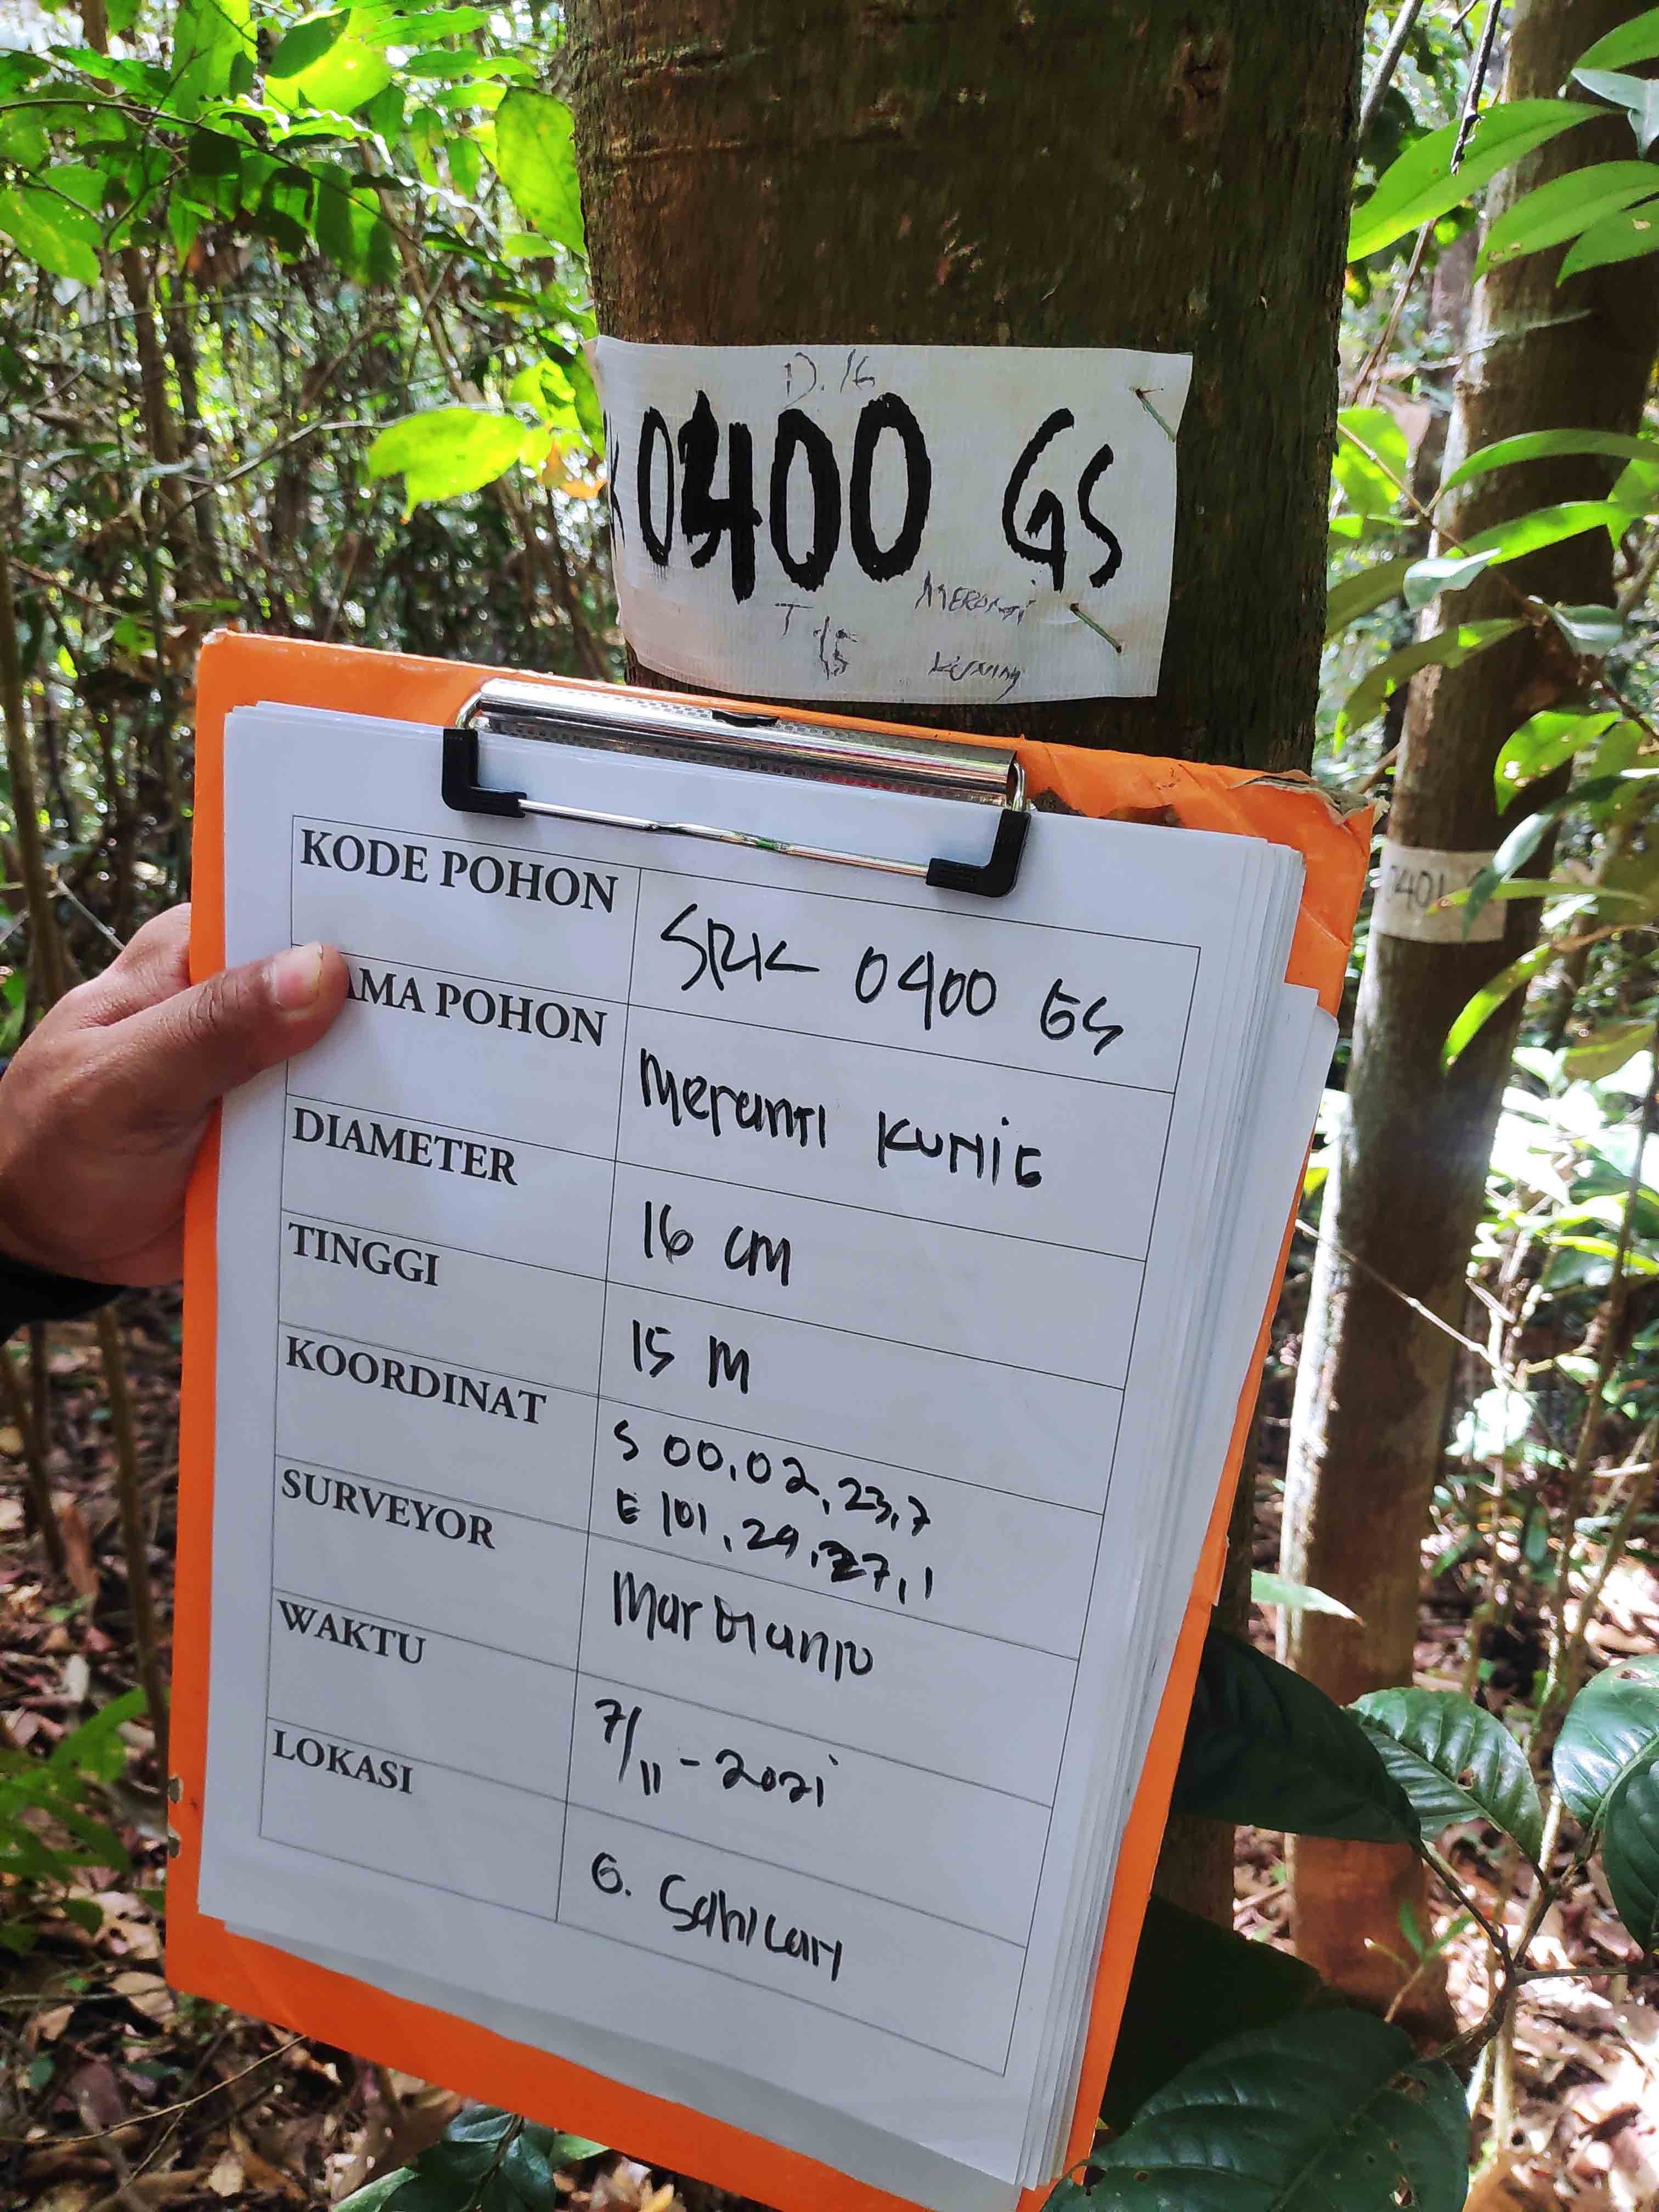 D.16
0400 GS
T 15
MERANTi
KUNiNg
KODE POHON
SRK 0400 GS
AMA POHON
Meranti KUNiG
DIAMETER
16 cm
TINGGI
15 M
KOORDINAT
S 00,02,23,7
E 101,29,27,1
SURVEYOR
Mardianto
WAKTU
7/11-2021
LOKASI
G. Sahilan
0401